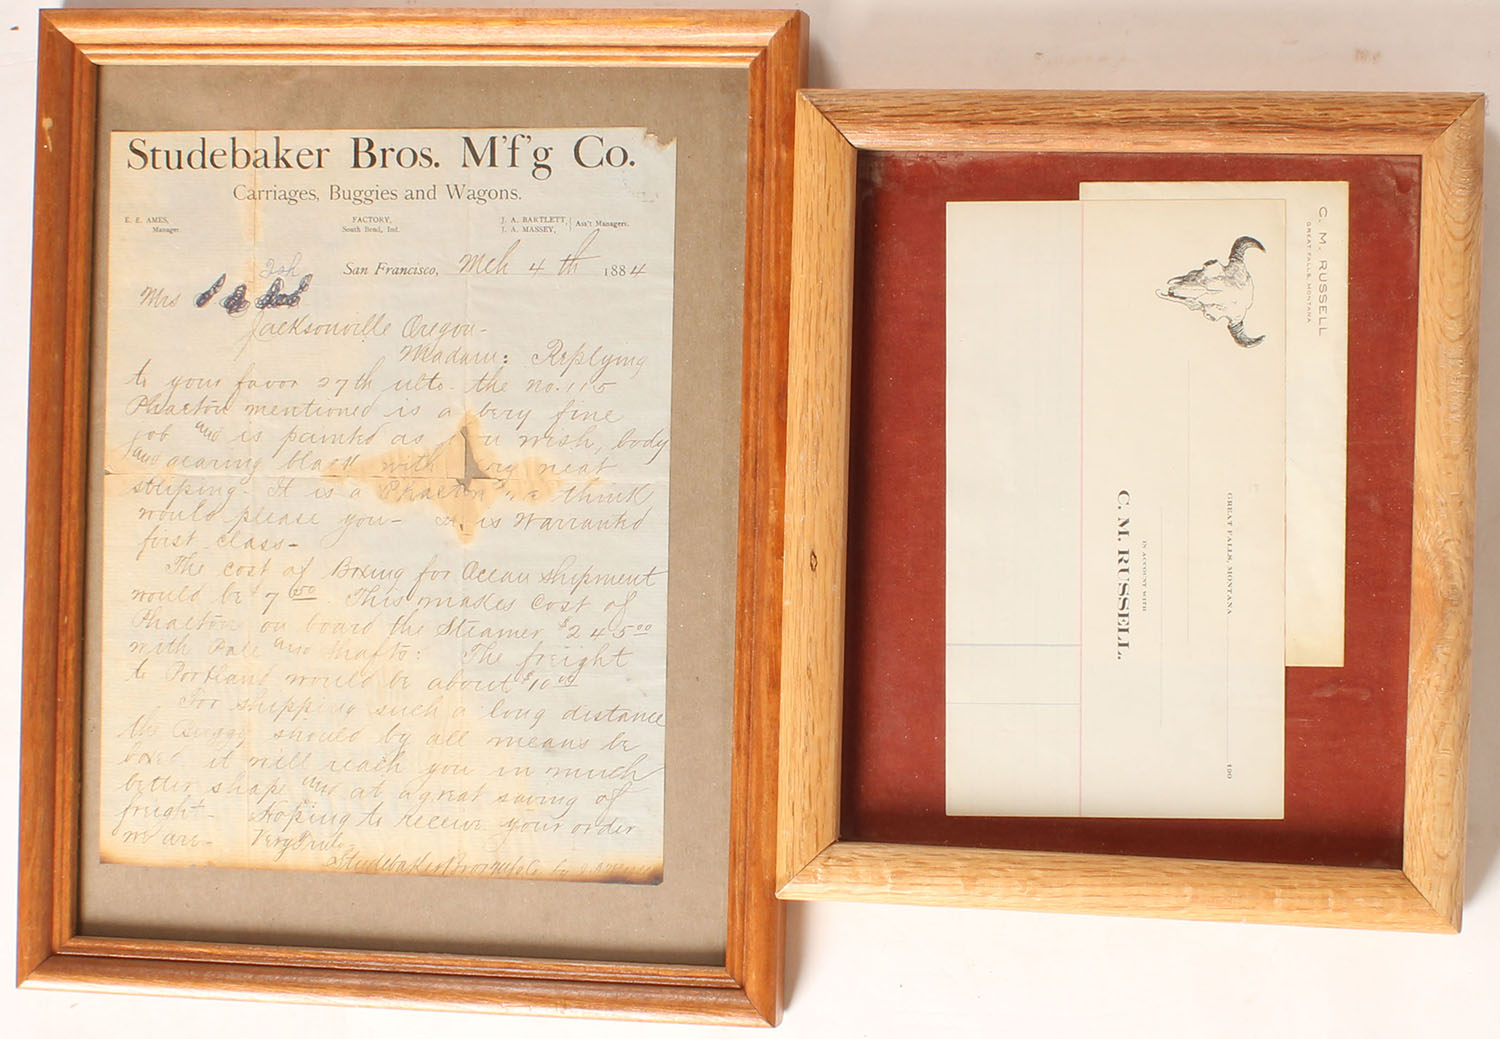 Studebaker Bros. M'f'g Co.
Carriages, Buggies and Wagons.
E. E. AMES,
Manager
FACTORY,
South Bend, Ind.
J. A. BARTLETT,
J. A. MASSEY,
Ass't Managers.
San Francisco, Mch 4th 1884
Mrs
Jacksonville Oregon-
Madam: Replying
to your favor 27th ulto- the No. 115
Phaeton mentioned is a very fine
job and is painted as you wish, body
and gearing black with very neat
striping- It is a Phaeton we think
would please you- It is warranted
first class-
The cost of Boxing for Ocean shipment
would be $7 50 This makes cost of
Phaeton on board the Steamer $245 00
with Pole and shafts: The freight
to Portland would be about $10 00
For shipping such a long distance
the Buggy should by all means be
boxed, it will reach you in much
better shape and at a great saving of
freight- Hoping to receive your order
we are- Very Truly-
Studebaker Bros Mfg Co by
C. M. RUSSELL
GREAT FALLS, MONTANA
GREAT FALLS, MONTANA 190
IN ACCOUNT WITH
C. M. RUSSELL.